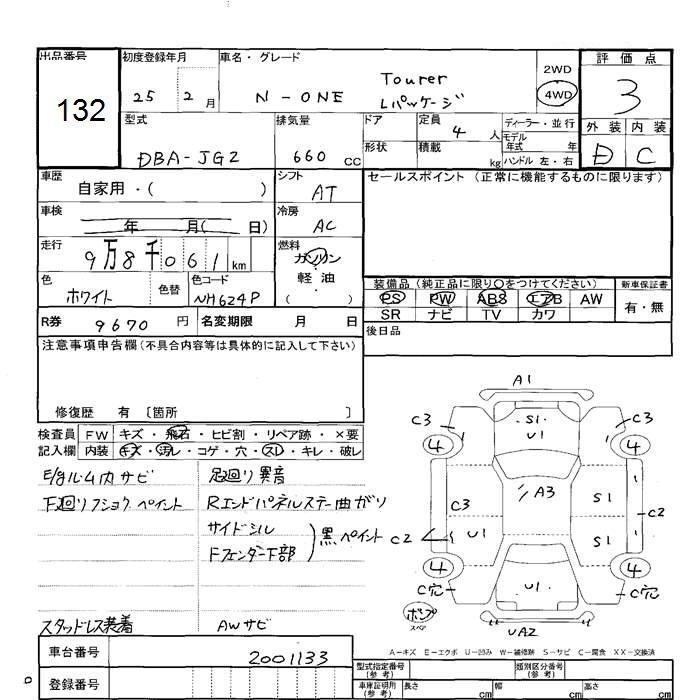 出品番号
132
初度登録年月
25 2 月
車名・グレード
N-ONE Tourer
Lパッケージ
2WD
4WD
評価点
3
外装 内装
D C
型式
DBA-JG2
排気量
660 cc
ドア
形状
定員
4 人
積載
kg
ディーラー・並行
モデル
年式 年
ハンドル 左・右
車歴
自家用・( )
シフト
AT
セールスポイント (正常に機能するものに限ります)
車検
年 月( 日)
冷房
AC
走行
9万8千061 km
燃料
ガソリン
軽・油
( )
色
ホワイト
色替
色コード
NH624P
装備品 (純正品に限り〇をつけてください)
新車保証書
PS PW ABS エアB AW
有・無
SR ナビ TV カワ
R券 9670 円
名変期限 月 日
後日品
注意事項申告欄 (不具合内容等は具体的に記入して下さい)
修復歴 有 〔箇所 〕
検査員
記入欄
FW キズ・飛石・ヒビ割・リペア跡・×要
内装 キズ・汚レ・コゲ・穴・スレ・キレ・破レ
E/gルーム内サビ
下廻りフショク、ペイント
足廻り異音
Rエンドパネルステー曲がり
サイドシル
Fフェンダー下部
黒ペイント
スタッドレス装着
AWサビ
A1
C3 S1 C3
4 U1 4
A3
C3 S1
C2
C2 U1 S1
4 4
C穴 U1 C穴
ポンプ
スペア
UA2
A-キズ E-エクボ U-凹み W-補修跡 S-サビ C-腐食 XX-交換済
車台番号
2001133
登録番号
型式指定番号
(参考)
類別区分番号
(参考)
車庫証明用
(参考)
長さ cm
幅 cm
高さ cm